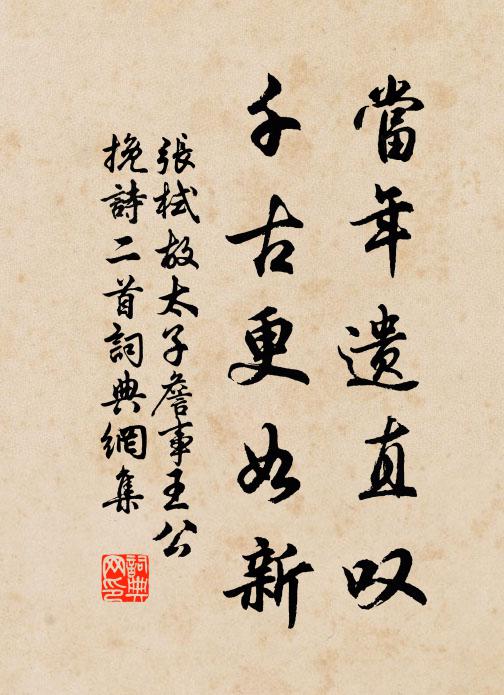 當年遺直叹
千古更如新
張栻故太子詹事王公
挽詩二首詞典網集
詞典网印